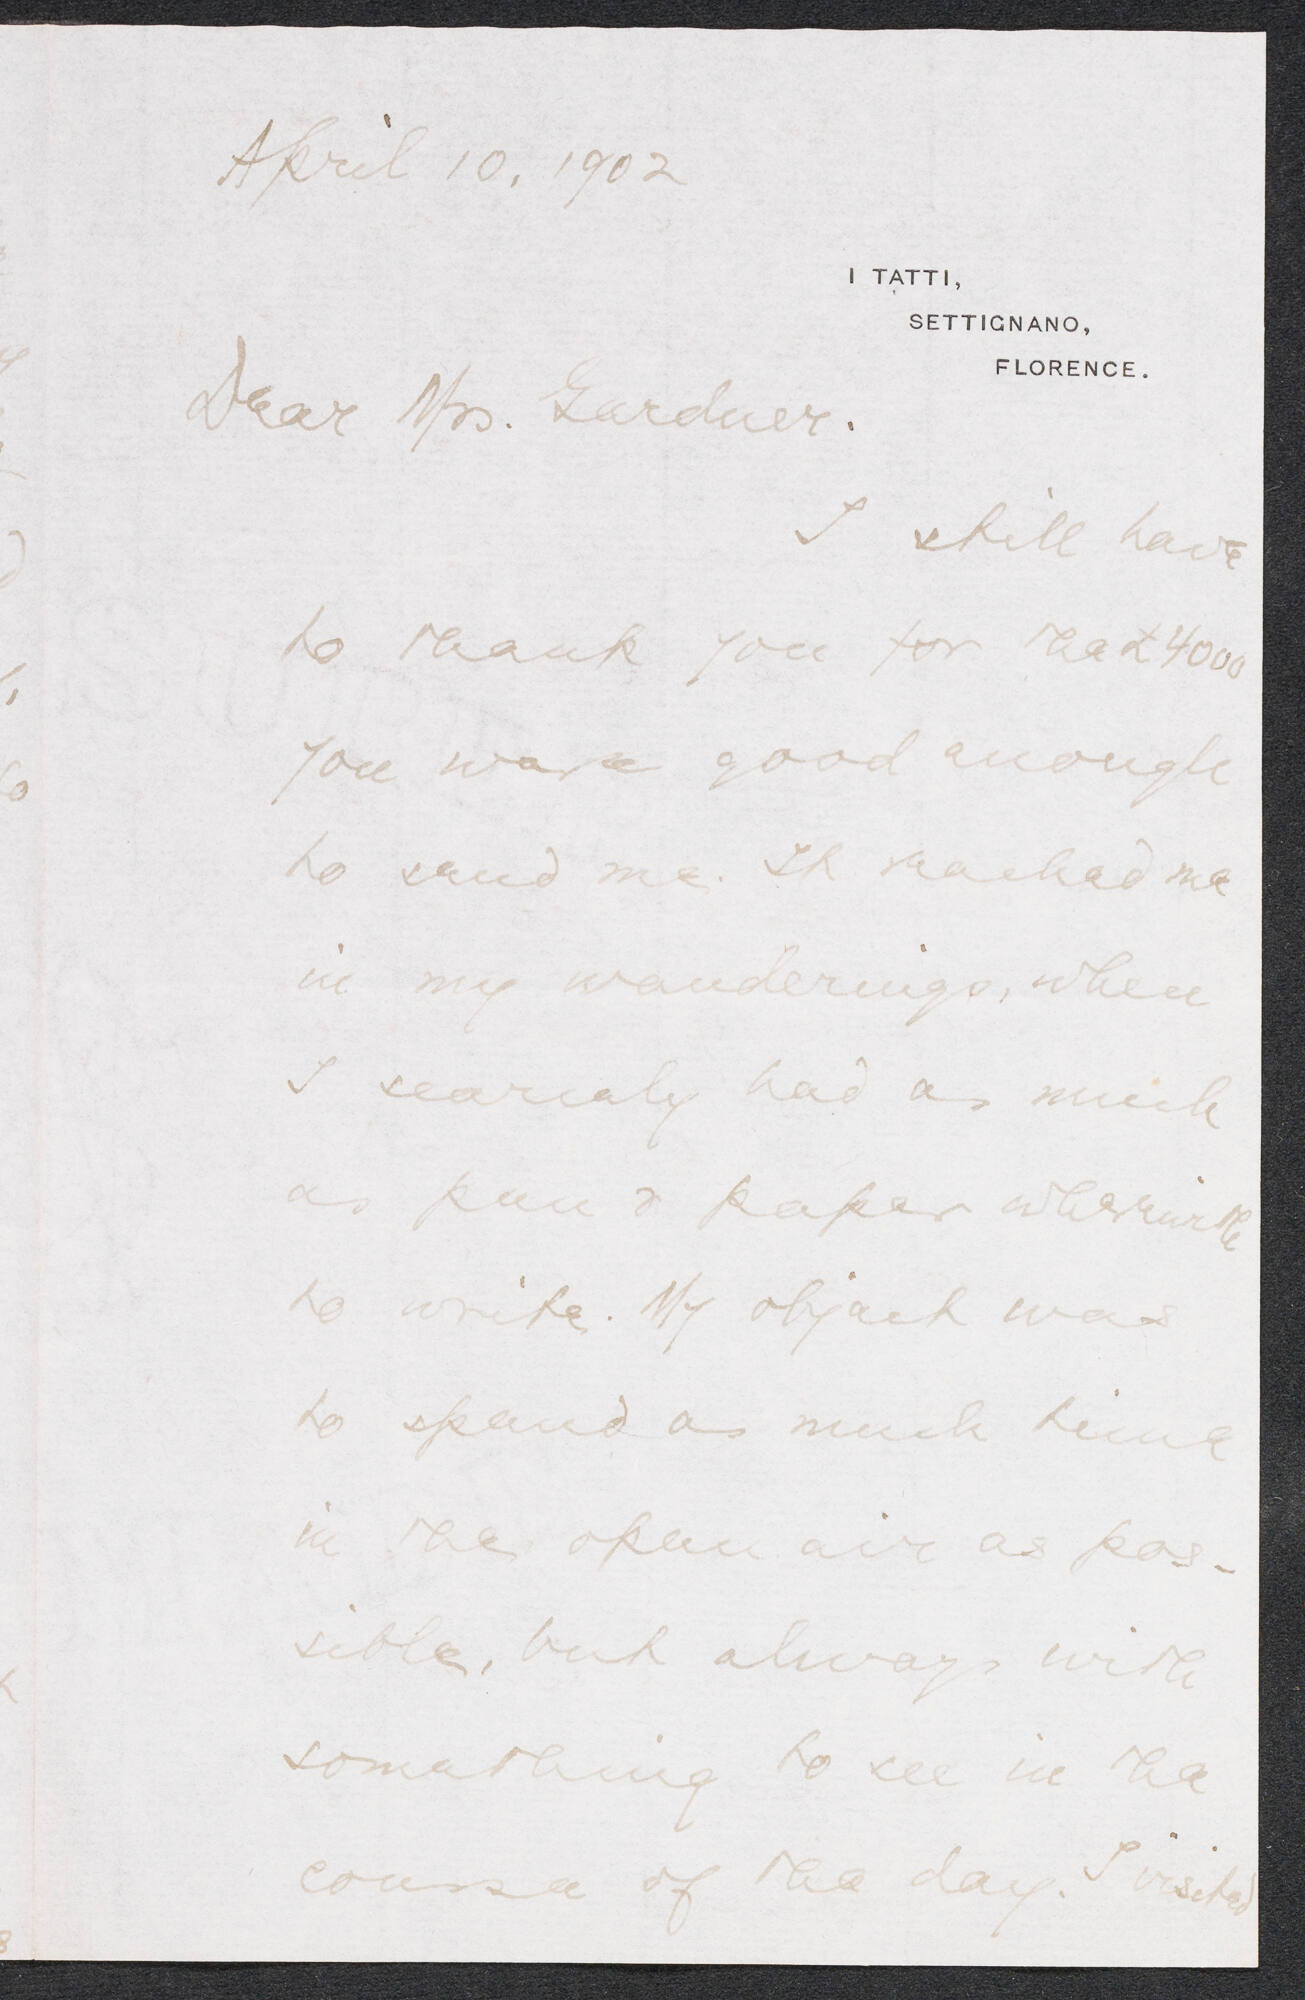 April 10, 1902
I TATTI,
SETTIGNANO,
FLORENCE.
Dear Mrs. Gardner.
I still have
to thank you for the £4000
you were good enough
to send me. It reached me
in my wanderings, when
I scarcely had as much
as pen & paper wherewith
to write. My object was
to spend as much time
in the open air as pos-
sible, but always with
something to see in the
course of the day. I visited